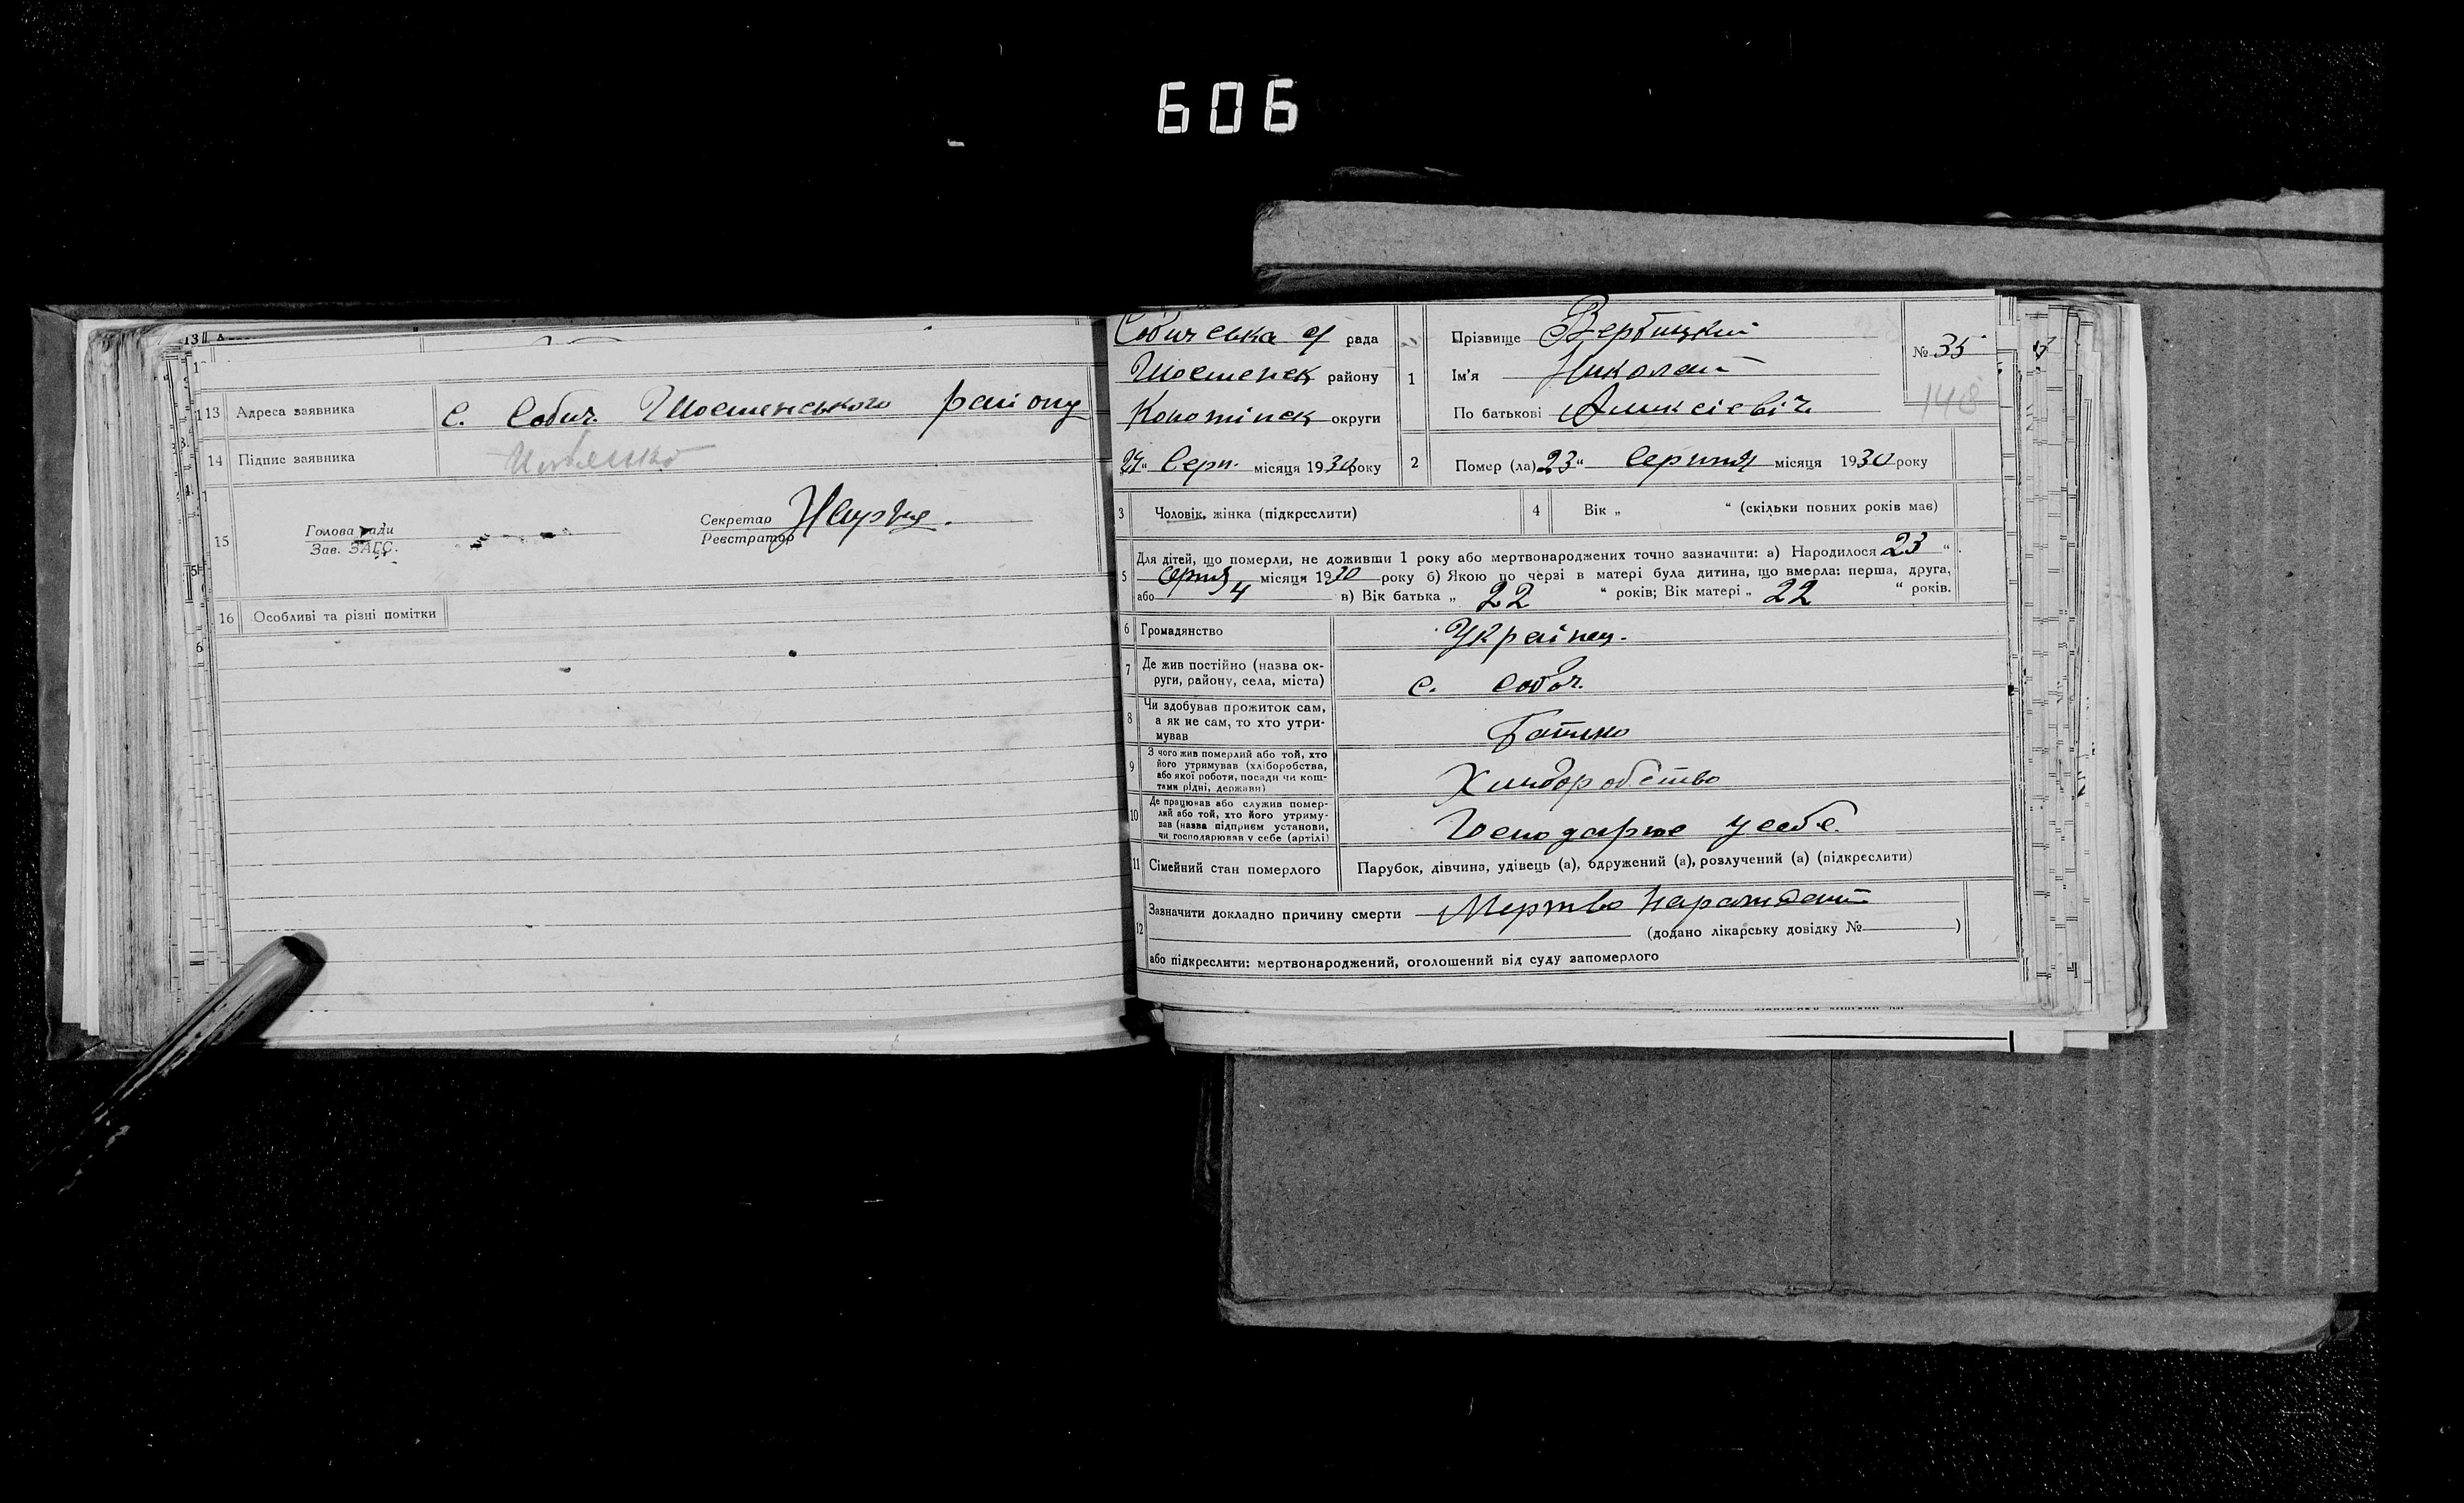 606
13 Адреса заявника с. Собич. Шостенського району
14 Підпис заявника
15 Голова ради
Зав. ЗАГС.
Секретар
Реєстратор
16 Особливі та різні помітки
Собичевська с/ рада
Шостенск району
Конотіпск округи
27 „ Серп. місяця 1930 року
1 Прізвище Вербицкий
Ім'я Николай
По батькові Аликсієвіч
№ 35
148
2 Помер (ла) 23 “ Серпня місяця 1930 року
3 Чоловік, жінка (підкреслити)
4 Вік „ “ (скільки повних років має)
5 Для дітей, що померли, не доживши 1 року або мертвонароджених точно зазначити: а) Народилося 23 “
Серпня місяця 1930 року б) Якою по черзі в матері була дитина, що вмерла: перша, друга,
або 4 в) Вік батька „ 22 “ років; Вік матері „ 22 “ років.
6 Громадянство Українец.
7 Де жив постійно (назва ок-
руги, району, села, міста) с. Собоч.
8 Чи здобував прожиток сам,
а як не сам, то хто утри-
мував Батько
9 З чого жив померлий або той, хто
його утримував (хліборобства,
або якої роботи, посади чи кош-
тами рідні, держави) Хлиборобство
10 Де працював або служив помер-
лий або той, хто його утриму-
вав (назва підприєм установи,
чи господарював у себе (артілі) Господарює у себе.
11 Сімейний стан померлого Парубок, дівчина, удівець (а), одружений (а), розлучений (а) (підкреслити)
12 Зазначити докладно причину смерти Мертво нарожденй
(додано лікарську довідку № )
або підкреслити: мертвонароджений, оголошений від суду запомерлого